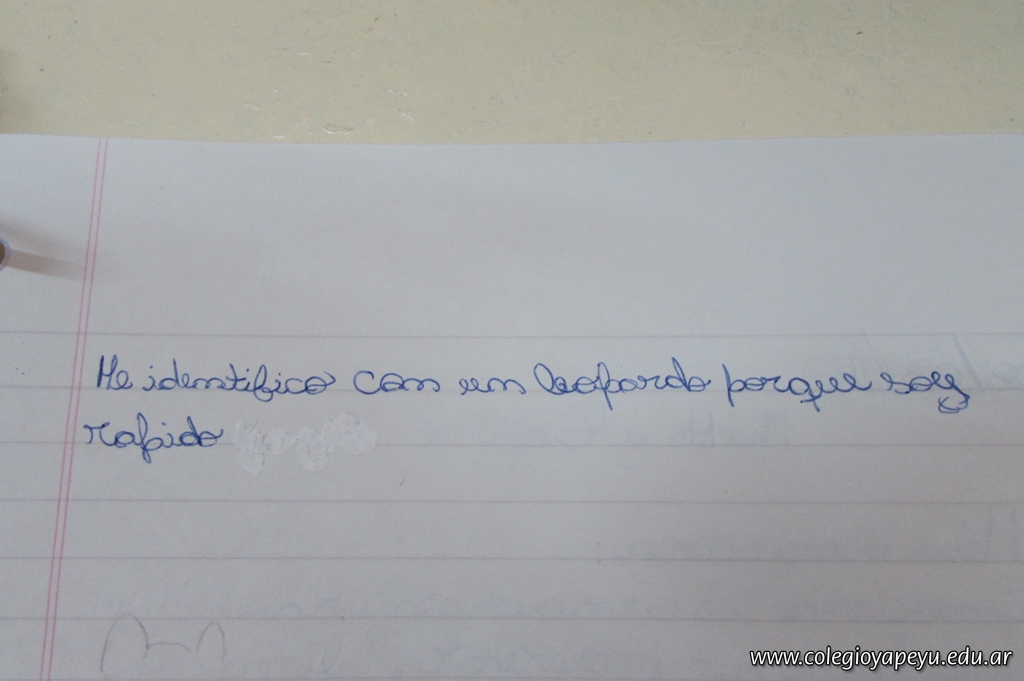 Me identifico con un leopardo porque soy
rapido
www.colegioyapeyu.edu.ar